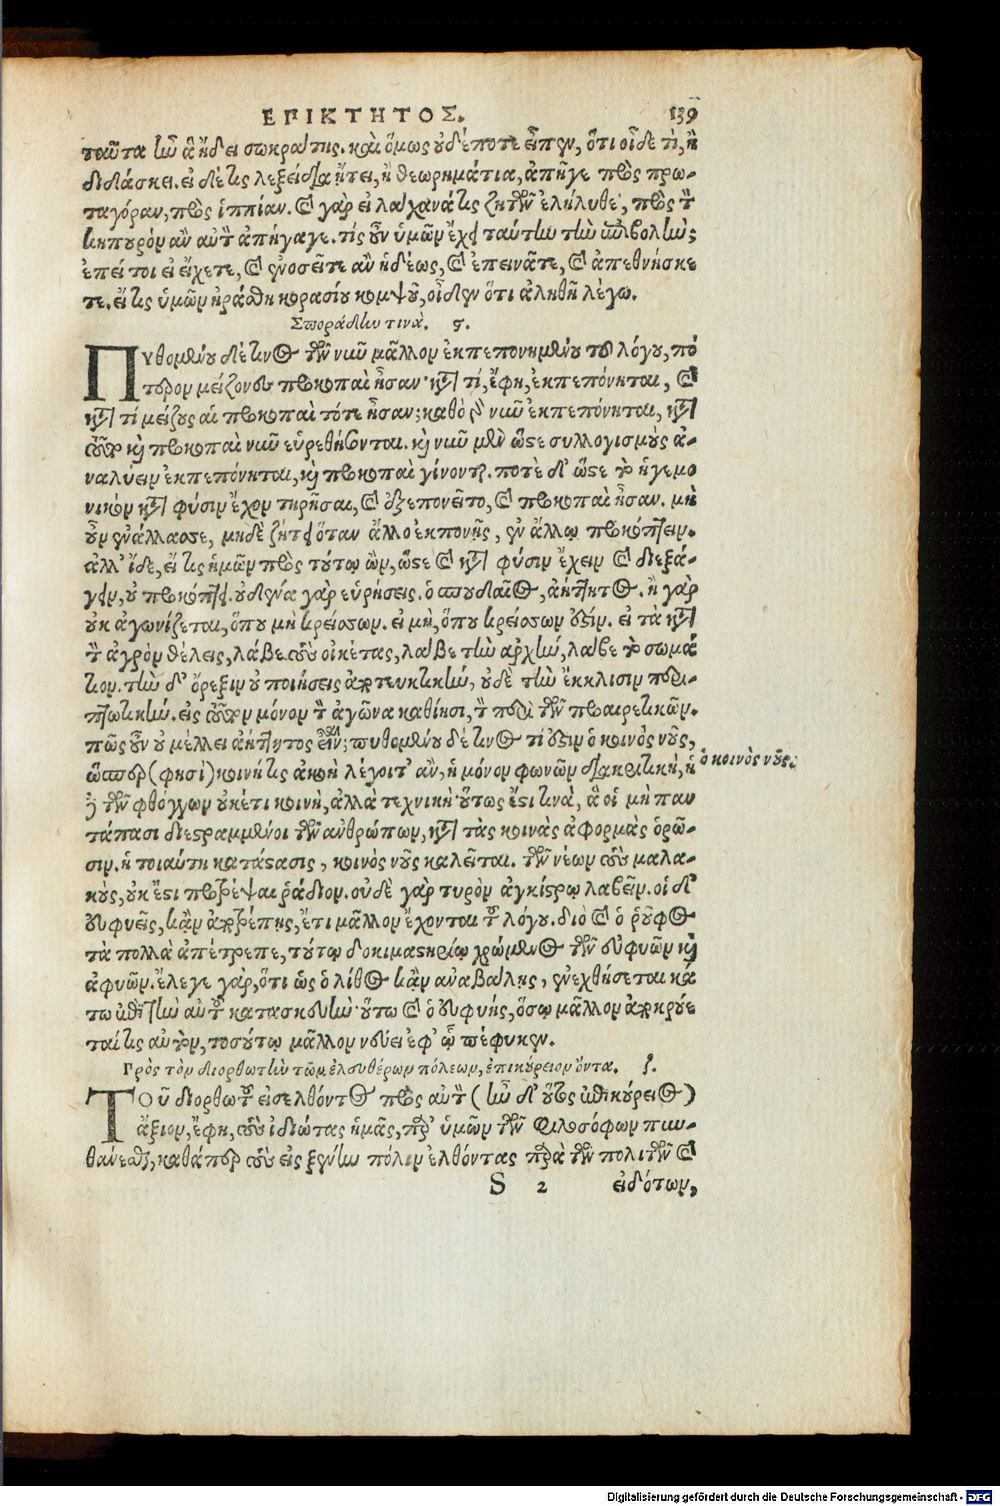 ΕΠΙΚΤΗΤΟΣ. 139
ταῦτα ἦν ἃ ᾔδει σωκράτης. καὶ ὅμως οὐδέποτε εἶπεν, ὅτι οἶδε τὶ, ἢ
διδάσκει. εἰ δέ τις λεξείδια ᾔτει, ἢ θεωρημάτια, ἀπῆγε πρὸς πρω-
ταγόραν, πρὸς ἱππίαν. καὶ γὰρ εἰ λάχανά τις ζητῶν ἐληλύθει, πρὸς τὸν
κηπουρὸν ἂν αὐτὸν ἀπήγαγε. τίς οὖν ὑμῶν ἔχει ταύτην τὴν ἐπιβολὴν;
ἐπεί τοι εἰ εἴχετε, καὶ ἐνοσεῖτε ἂν ἡδέως, καὶ ἐπεινᾶτε, καὶ ἀπεθνήσκε
τε. εἴ τις ὑμῶν ἠράσθη κορασίου κομψοῦ, οἶδεν ὅτι ἀληθῆ λέγω.
Σποράδην τινὰ. ϛ.
Πυθομένου δέ τινος τῶν νῦν μᾶλλον ἐκπεπονημένου τοῦ λόγου, πό
τερον μείζονες προκοπαὶ ἦσαν· κατὰ τί, ἔφη, ἐκπεπόνηται, καὶ
κατὰ τί μείζους αἱ προκοπαὶ τότε ἦσαν; καθὸ γὰρ νῦν ἐκπεπόνηται, κατὰ
τοῦτο καὶ προκοπαὶ νῦν εὑρεθήσονται. καὶ νῦν μὲν ὥστε συλλογισμοὺς ἀ-
ναλύειν ἐκπεπόνηται, καὶ προκοπαὶ γίνονται. ποτὲ δ' ὥστε τὸ ἡγεμο
νικὸν κατὰ φύσιν ἔχον τηρῆσαι, καὶ ἐξεπονεῖτο, καὶ προκοπαὶ ἦσαν. μὴ
οὖν ἐνάλλασσε, μηδὲ ζήτει ὅταν ἄλλο ἐκπονῇς, ἐν ἄλλῳ προκόπτειν.
ἀλλ' ἴδε, εἴ τις ἡμῶν πρὸς τούτῳ ὢν, ὥστε καὶ κατὰ φύσιν ἔχειν καὶ διεξά-
γειν, οὐ προκόπτει. οὐδένα γὰρ εὑρήσεις. ὁ σπουδαῖος, ἀήττητος. ἢ γὰρ
οὐκ ἀγωνίζεται, ὅπου μὴ κρείσσων. εἰ μὴ, ὅπου κρείσσων ἐστίν. εἰ τὰ κατὰ
τὸν ἀγρὸν θέλεις, λάβε. τοὺς οἰκέτας, λάβε τὴν ἀρχήν, λάβε τὸ σωμά
τιον. τὴν δ' ὄρεξιν οὐ ποιήσεις ἀποτευκτικήν, οὐδὲ τὴν ἔκκλισιν περι-
πτωτικήν. εἰς τοῦτον μόνον τὸν ἀγῶνα καθίησι, τὸν περὶ τῶν προαιρετικῶν.
πῶς οὖν οὐ μέλλει ἀήττητος εἶναι; πυθομένου δέ τινος τί ἐστιν ὁ κοινὸς νοῦς,
ὥσπερ (φησὶ) κοινή τις ἀκοὴ λέγοιτ' ἂν, ἡ μόνον φωνῶν διακριτικὴ, ἡ
ὁ κοινὸς νοῦς.
δὲ τῶν φθόγγων οὐκέτι κοινὴ, ἀλλὰ τεχνικὴ· οὕτως ἔστι τινὰ, ἃ οἱ μὴ παν
τάπασι διεστραμμένοι τῶν ἀνθρώπων, κατὰ τὰς κοινὰς ἀφορμὰς ὁρῶ-
σιν. ἡ τοιαύτη κατάστασις, κοινὸς νοῦς καλεῖται. τῶν νέων τοὺς μαλα-
κοὺς, οὐκ ἔστι προτρέψαι ῥάδιον. οὐδὲ γὰρ τυρὸν ἀγκίστρῳ λαβεῖν. οἱ δ'
εὐφυεῖς, κἂν ἀποτρέπῃς, ἔτι μᾶλλον ἔχονται τοῦ λόγου. διὸ καὶ ὁ ῥοῦφος
τὰ πολλὰ ἀπέτρεπε, τούτῳ δοκιμαστηρίῳ χρώμενος τῶν εὐφυῶν καὶ
ἀφυῶν. ἔλεγε γὰρ, ὅτι ὡς ὁ λίθος κἂν ἀναβάλῃς, ἐνεχθήσεται κά
τω ἐπὶ γῆν αὐτοῦ κατασκευὴν· οὕτω καὶ ὁ εὐφυής, ὅσῳ μᾶλλον ἀποκρούε
ταί τις αὐτὸν, τοσούτῳ μᾶλλον νεύει ἐφ' ᾧ πέφυκεν.
Πρὸς τὸν διορθωτὴν τῶν ἐλευθέρων πόλεων, ἐπικούρειον ὄντα. ζ.
Τοῦ διορθωτοῦ εἰσελθόντος πρὸς αὐτὸν (ἦν δ' οὗτος ἐπικούρειος)
ἄξιον, ἔφη, τοὺς ἰδιώτας ἡμᾶς, παρ' ὑμῶν τῶν φιλοσόφων πυν-
θάνεσθαι, καθάπερ τοὺς εἰς ξένην πόλιν ἐλθόντας παρὰ τῶν πολιτῶν καὶ
S 2 εἰδότων,
Digitalisierung gefördert durch die Deutsche Forschungsgemeinschaft - DFG